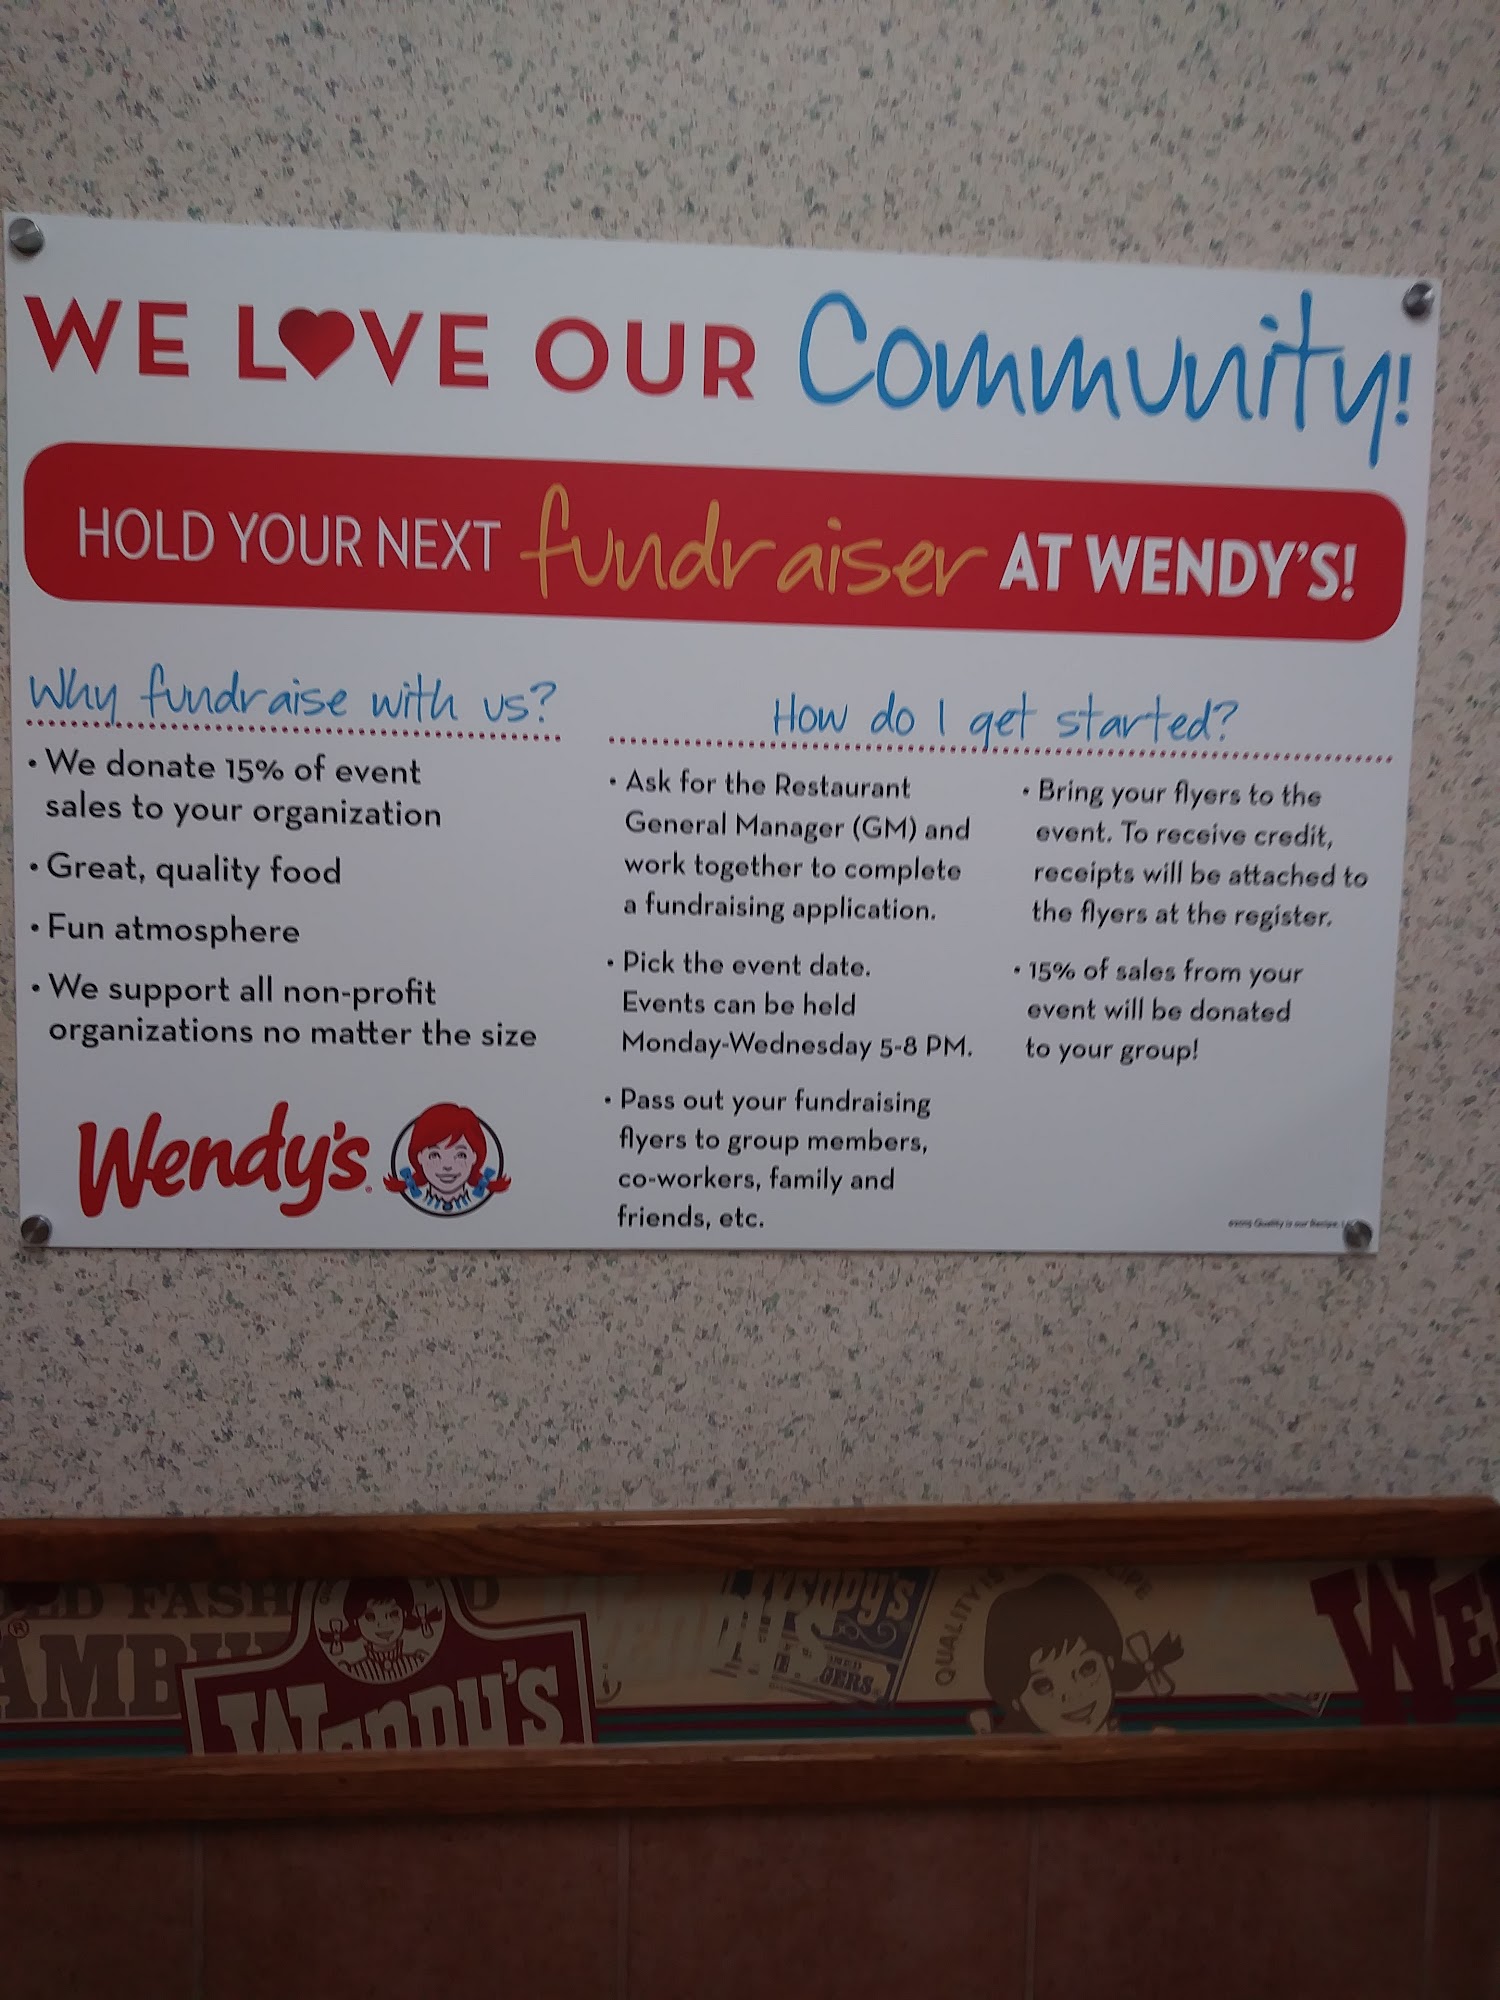 WE LOVE OUR Community!
HOLD YOUR NEXT fundraiser AT WENDY'S!
Why fundraise with us?
• We donate 15% of event
sales to your organization
• Great, quality food
• Fun atmosphere
• We support all non-profit
organizations no matter the size
Wendy's
How do I get started?
• Ask for the Restaurant
General Manager (GM) and
work together to complete
a fundraising application.
• Pick the event date.
Events can be held
Monday-Wednesday 5-8 PM.
• Pass out your fundraising
flyers to group members,
co-workers, family and
friends, etc.
• Bring your flyers to the
event. To receive credit,
receipts will be attached to
the flyers at the register.
• 15% of sales from your
event will be donated
to your group!
Quality is our Recipe,
FASH
AMBU
Wendy's
Wendy's
GERS
QUALITY IS
We